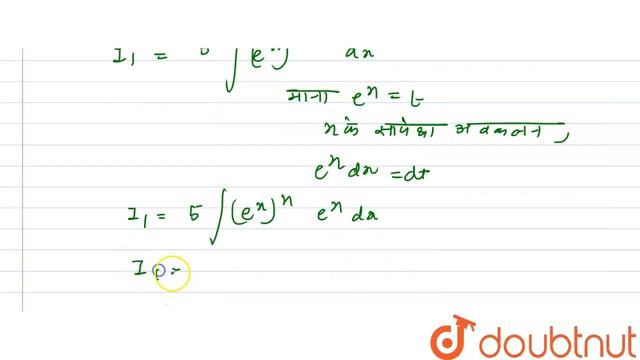 I₁ = ∫(eˣ) dx
माना eˣ = t
x के सापेक्ष अवकलन,
eˣ dx = dt
I₁ = 5 ∫(eˣ)ˣ eˣ dx
I₁ =
doubtnut